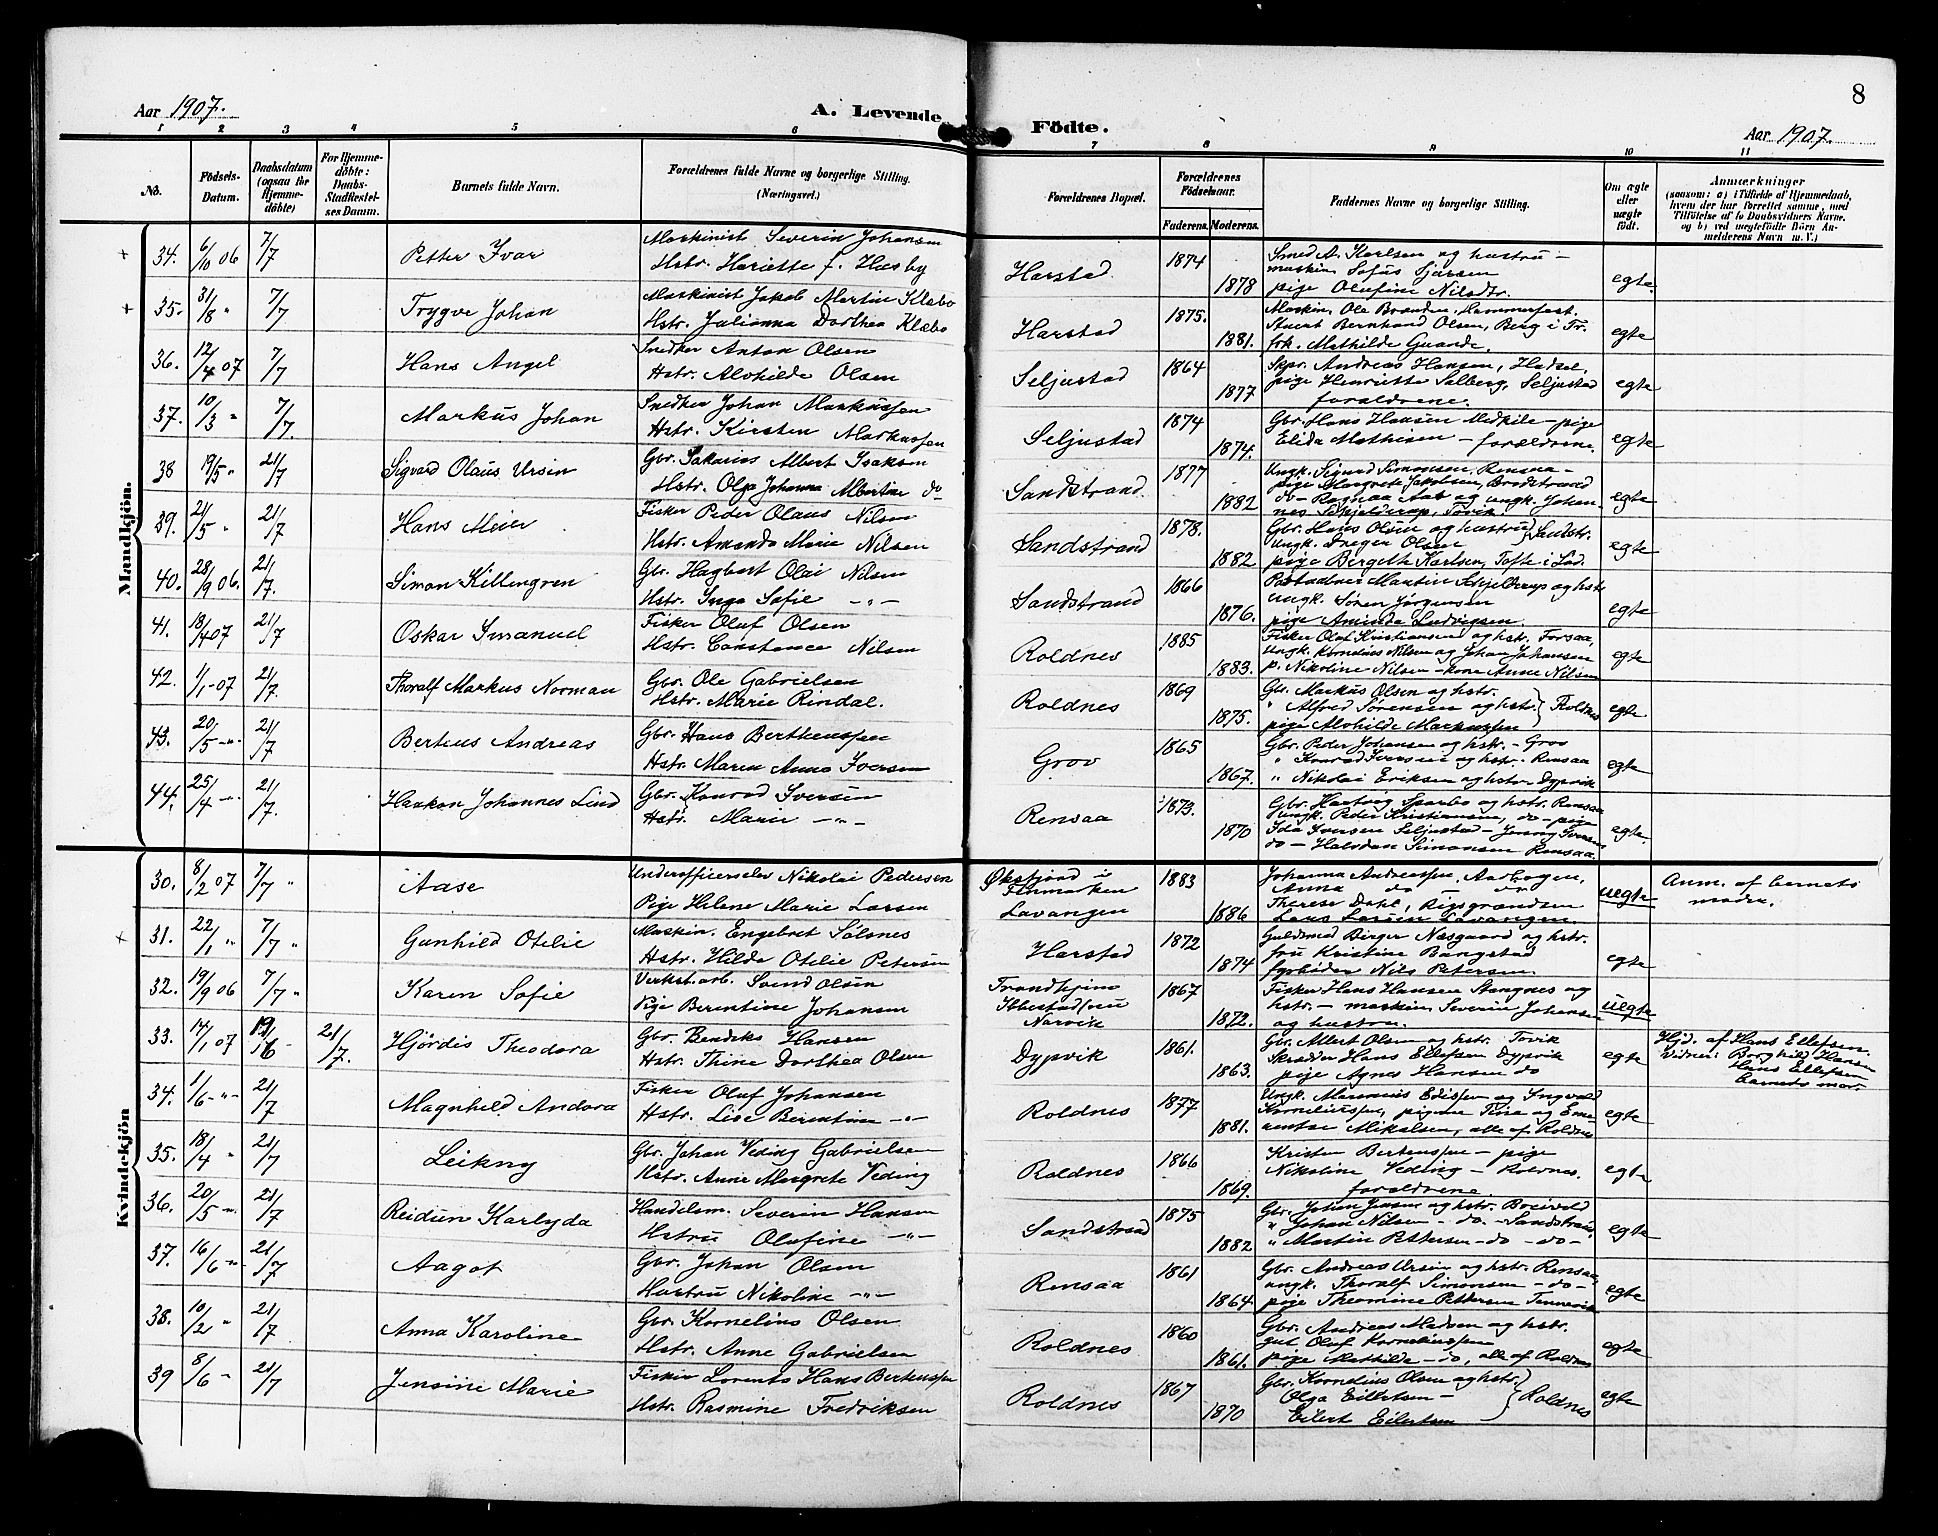 8
Aar 1907.
A. Levende Födte.
Aar 1907.
1 2 3 4 5 6 7 8 9 10 11
No.
Födsels-Datum.
Daabsdatum (ogsaa for Hjemmedöbte)
For Hjemmedöbte: Daabs-Stadfestelses Datum.
Barnets fulde Navn.
Forældrenes fulde Navne og borgerlige Stilling. (Næringsvei.)
Forældrenes Bopæl.
Forældrenes Födselsaar.
Faderens. Moderens.
Faddernes Navne og borgerlige Stilling.
Om ægte eller uægte födt.
Anmærkninger
(saasom: a) i Tilfælde af Hjemmedaab, hvem der har forrettet samme, med Tilföielse af to Daabsvidners Navne. og b) ved uægtefödte Börn Anmelderens Navn m. V.)
Mandkjön.
34. 6/10 06 7/7 Petter Ivar Maskinist Severin Johansen
Hstr. Hariette f. Hæsby
Harstad. 1874 1878
Smed A. Karlsen og hustru –
maskin. Sofus Sjørsen
pige Olufine Nilsdtr.
egte.
35. 31/8 " 7/7 Trygve Johan Maskinist Jakob Martin Klæbo
Hstr. Julianna Dorthea Klæbo
Harstad 1875. 1881.
Maskin. Ole Brandon, Hammerfest.
Stuert Bernhard Olsen, Berg i Tr.
frk. Mathilde Guande.
egte
36. 12/4 07 7/7 Hans Angel Snedker Anton Olsen
Hstr. Alvhilde Olsen
Seljustad 1864 1877
Skpr. Andreas Hansen, Hadsel,
pige Henriette Salberg, Seljustad
forældrene.
egte
37. 10/3 " 7/7. Markus Johan Snedker Johan Markussen
Hstr. Kirsten Markussen
Seljustad 1874 1874.
Gbr. Hans Hansen Medkile – pige
Elida Mathisen – forældrene.
egte
38 19/5 " 21/7 Sigvard Olaus Ursin Gbr. Sakarias Albert Isaksen
Hstr. Olga Johanna Albertine do
Sandstrand. 1877 1882
Ungk. Sigurd Simonsen, Rensaa –
pige Margrete Jakobsen, Brodstrand
do – Ragnaa Aab og ungk. Johan-
nes Schjelderup, Tovik.
egte
39. 21/5 " 21/7 Hans Meier Fisker Peder Olaus Nilsen
Hstr. Amanda Marie Nilsen
Sandstrand 1878. 1882
Gbr. Hans Olsen og hustru } Sandstr.
ungk. Dreyer Olsen
pige Bergette Karlsen, Tofte i Lød.
egte
40. 28/9 06. 21/7. Simon Killengren Gbr. Hagbart Olai Nilsen
Hstr. Inga Sofie – " –
Sandstrand 1866 1876.
Postaabner Martin Schjelderup og hstr.
ungk. Søren Jørgensen
pige Aminda Ludvigsen.
egte
41. 18/4 07 21/7 Oskar Imanuel Fisker Oluf Olsen
Hstr. Constance Nilsen
Roldnes 1885 1883.
Fisker Olaf Kristiansen og hstr. Forsaa,
Ungk. Kornelius Nilsen og Johan Johansen
p. Nikoline Nilsen – kone Anne Nilsen
egte
42. 1/1 – 07 21/7. Thoralf Markus Norman Gbr. Ole Gabrielsen
Hstr. Marie Rindal.
Roldnes 1869 1875.
Gbr. Markus Olsen og hstr.
" Alfred Sørensen og hstr. } Roldnes
pige Alvhilde Markussen
egte
43. 20/5 – " – 21/7 Berteus Andreas Gbr. Hans Bertheussen
Hstr. Maren Anna Iversen
Grov 1865 1867.
Gbr. Peder Johansen og hstr. – Grov
" Konrad Iversen og hstr. Rensaa
" Nikolai Eriksen og hstr. Dypvik
egte
44. 25/4 – " – 21/7. Haakon Johannes Lind Gbr. Konrad Iversen
Hstr. Marie – " –
Rensaa 1873. 1870
Gbr. Hartvig Sparbo og hstr. Rensaa
ungk. Peder Kristiansen, do – pige
Ida Iversen Seljustad – Jenny Iversen
do – Halvdan Simonsen Rensaa.
egte
Kvindekjön
30. 8/2 07 7/7 " Aase Underofficerselev Nikolai Pedersen
Pige Helene Marie Larsen
Øksfjord i Finmarken
Lavangen
1883 1886
Johanna Andreassen, Aarbogen,
Anna do – do
Therese Dahl, Rigsgrænsen
Lars Larsen Lavangen.
uegte
Anm. af barnets moder.
31. 22/1 " 7/7 " Gunhild Otelie Maskin. Engebret Sølsnes
Hstr. Hilda Otelie Petersen
Harstad 1872 1874
Guldsmed Birger Næsgaard og hstr.
fru Kristine Bangstad
fyrbøder Nils Petersen.
egte
32. 19/9 06 7/7 " Karen Sofie Verkst.arb. Svend Olsen
Pige Berentine Johansen
Trondhjem
Ibbestad/nu Narvik
1867 1872.
Fisker Hans Hansen Stangnes og
hstr. – maskin. Severin Johansen
og hustru.
uegte
33. 14/1 07 19/6 – 21/7. Hjørdis Theodora Gbr. Bendiks Hansen
Hstr. Thine Dorthea Olsen
Dypvik 1861. 1863.
Gbr. Albert Olsen og hstr. Tovik
Skrædder Hans Ellefsen Dypvik
pige Agnes Hansen do
egte
Hjd. af Hans Ellefsen.
Vidner: Borghild Hansen
Hans Ellefsen
barnets mor.
34. 1/6 – " – 21/7 Magnhild Andora Fisker Oluf Johansen
Hstr. Lise Berintine – " –
Roldnes 1877 1881.
Ungk. Maronius Edissen og Ingvald
Korneliussen, pigerne Tine og Eme-
rentse Mikalsen, alle af Roldnes
egte
35. 18/4 " 21/7 Leikny Gbr. Johan Veding Gabrielsen
Hstr. Anne Margrete Veding
Roldnes 1866 1869.
Kristen Bertenssen – pige
Nikoline Veding – Roldnes.
forældrene.
egte
36. 20/5 – " – 21/7 Reidun Karlyda Handelsm. Severin Hansen
Hstru Olufine – " –
Sandstrand 1875 1882
Gbr. Johan Jensen og hstr. Breivold
" Johan Nilsen – do – Sandstrand
" Martin Pettersen – do – do –
egte
37. 16/6 – " – 21/7 Aagot Gbr. Johan Olsen
Hustru Nikoline – " –
Rensaa 1861 1864.
Gbr. Andreas Ursin og hstr. Rensaa,
ungk. Thoralf Simonsen – do –
pige Theomine Pettersen Tennevik
egte
38. 10/2 " 21/7 Anna Karoline Gbr. Kornelius Olsen
Hstr. Anne Gabrielsen
Roldnes 1860 1861.
Gbr. Andreas Madsen og hstr.
gut Oluf Korneliussen
pige Mathilde – do, alle af Roldnes
egte
39 8/6 – 21/7 Jensine Marie Fisker Lorents Hans Bertenssen
Hstr. Rasmine Fredriksen
Roldnes 1867 1870
Gbr. Kornelius Olsen og hstr.
Olga Eilertsen – } Roldnes
Eilert Eilertsen
egte